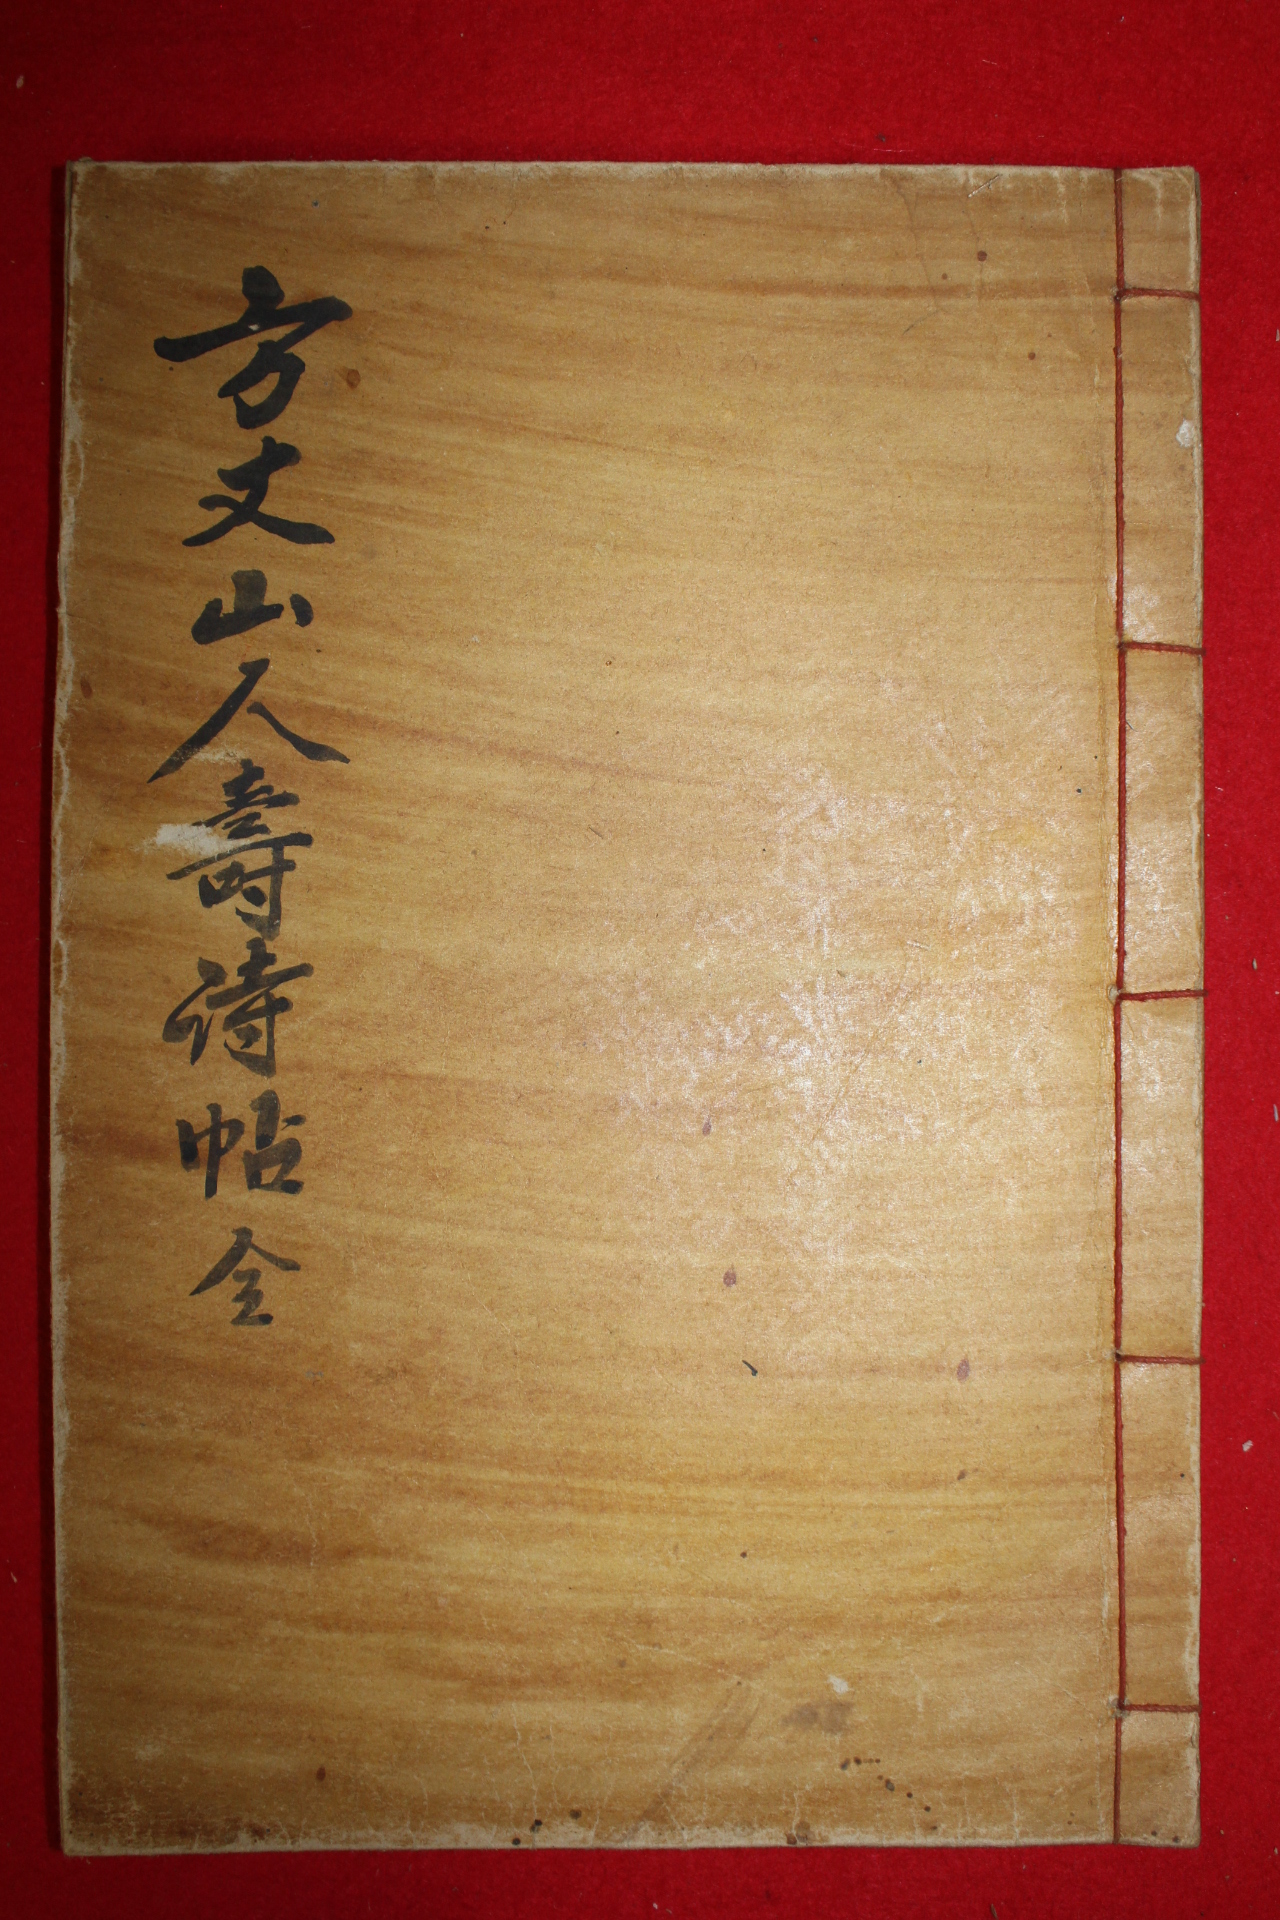 方丈山人壽詩帖 全